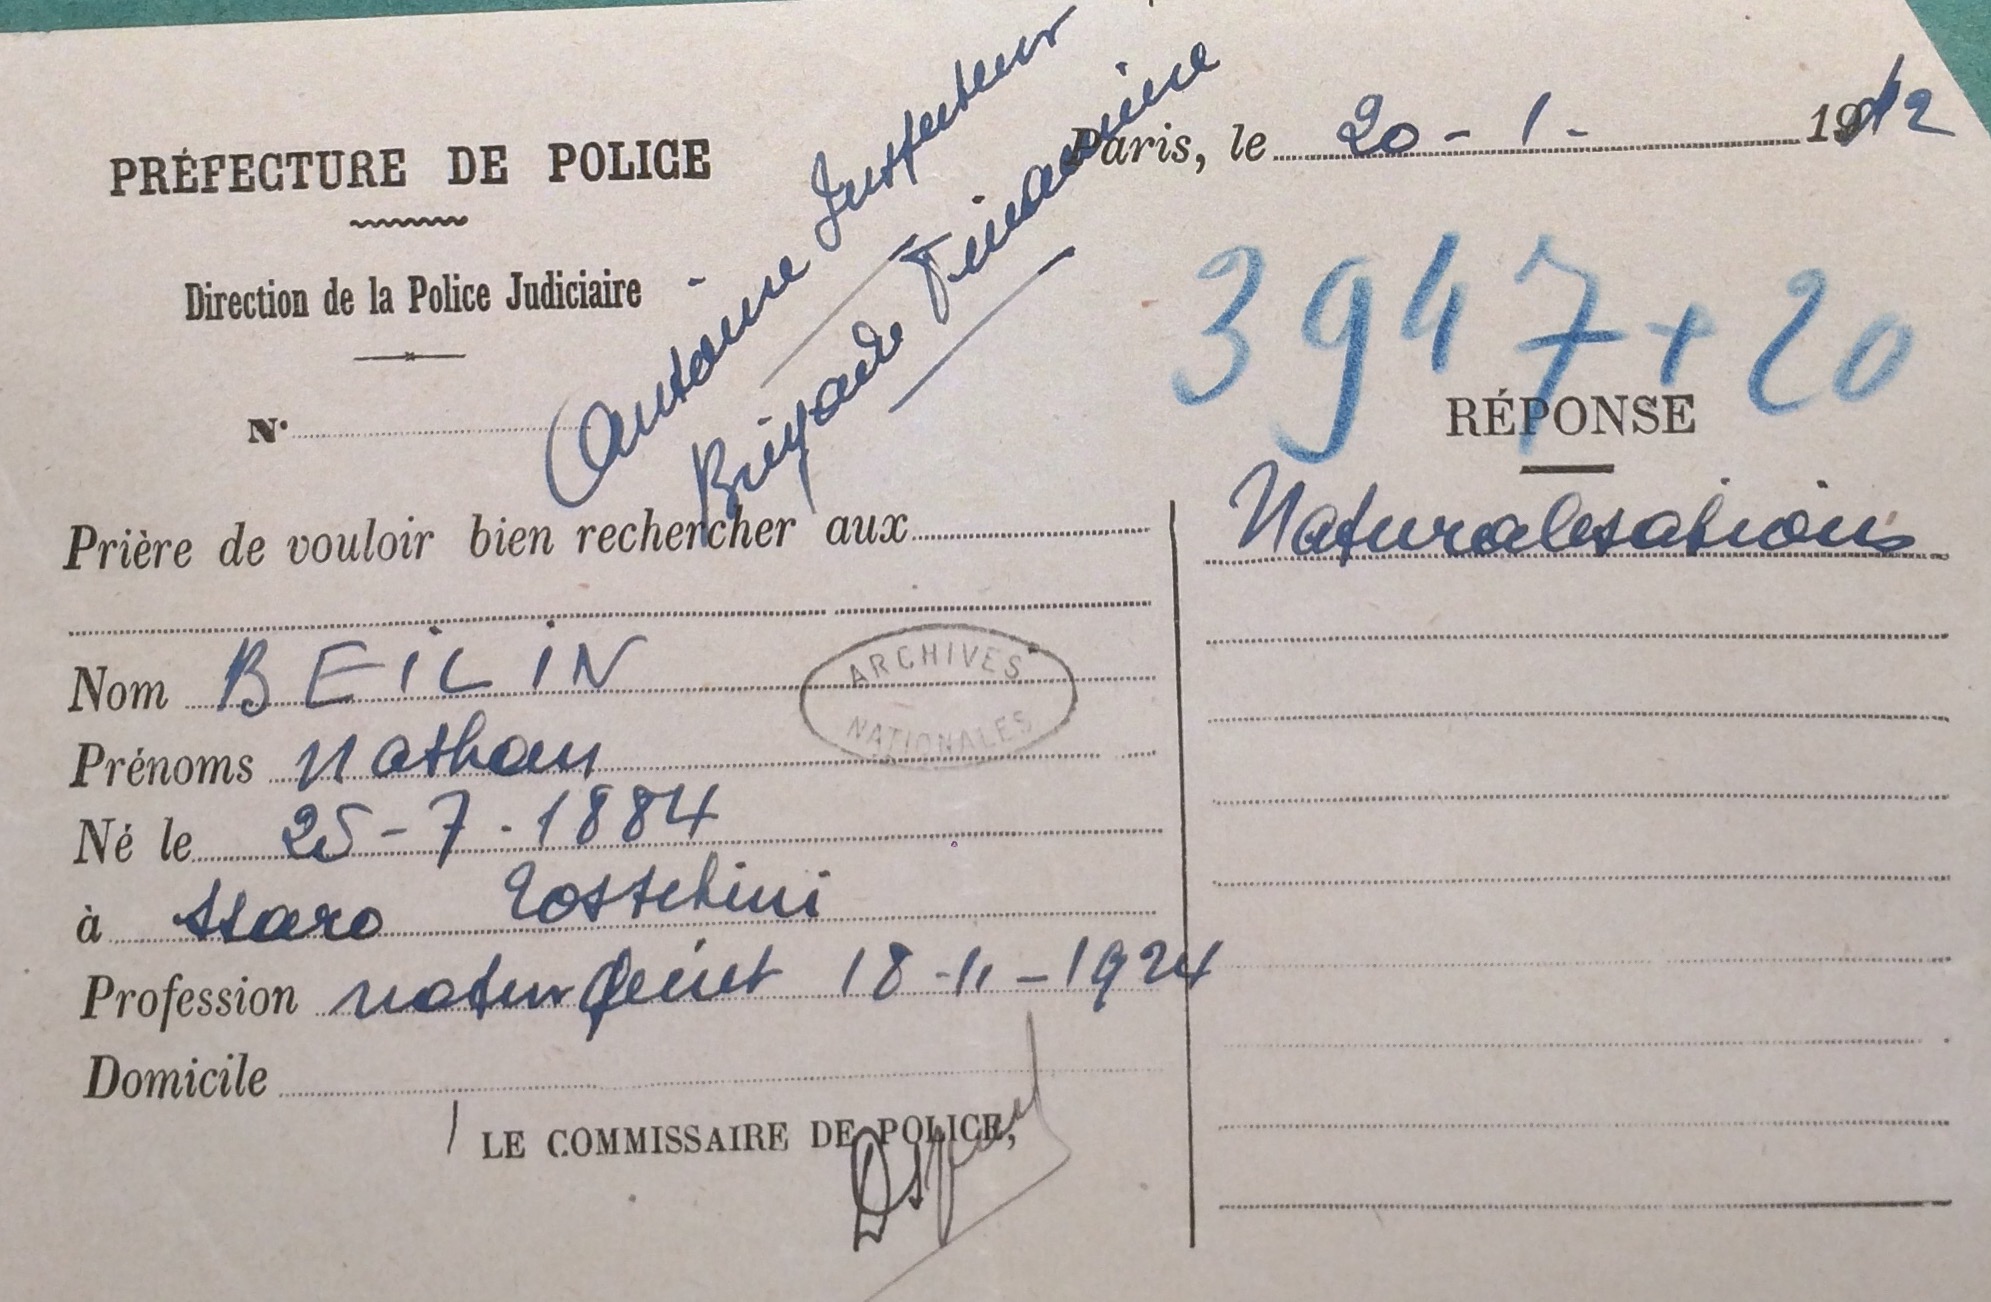 PRÉFECTURE DE POLICE
Direction de la Police Judiciaire
N°
Antoine Inspecteur
Brigade Financière
Paris, le 20 - 1 - 1942
3947 + 20
RÉPONSE
Naturalisations
Prière de vouloir bien rechercher aux
Nom BEILIN
Prénoms Nathan
Né le 25 - 7 - 1884
à Staro
Profession natur décret 18 - 11 - 1924
Domicile
LE COMMISSAIRE DE POLICE,
ARCHIVES NATIONALES